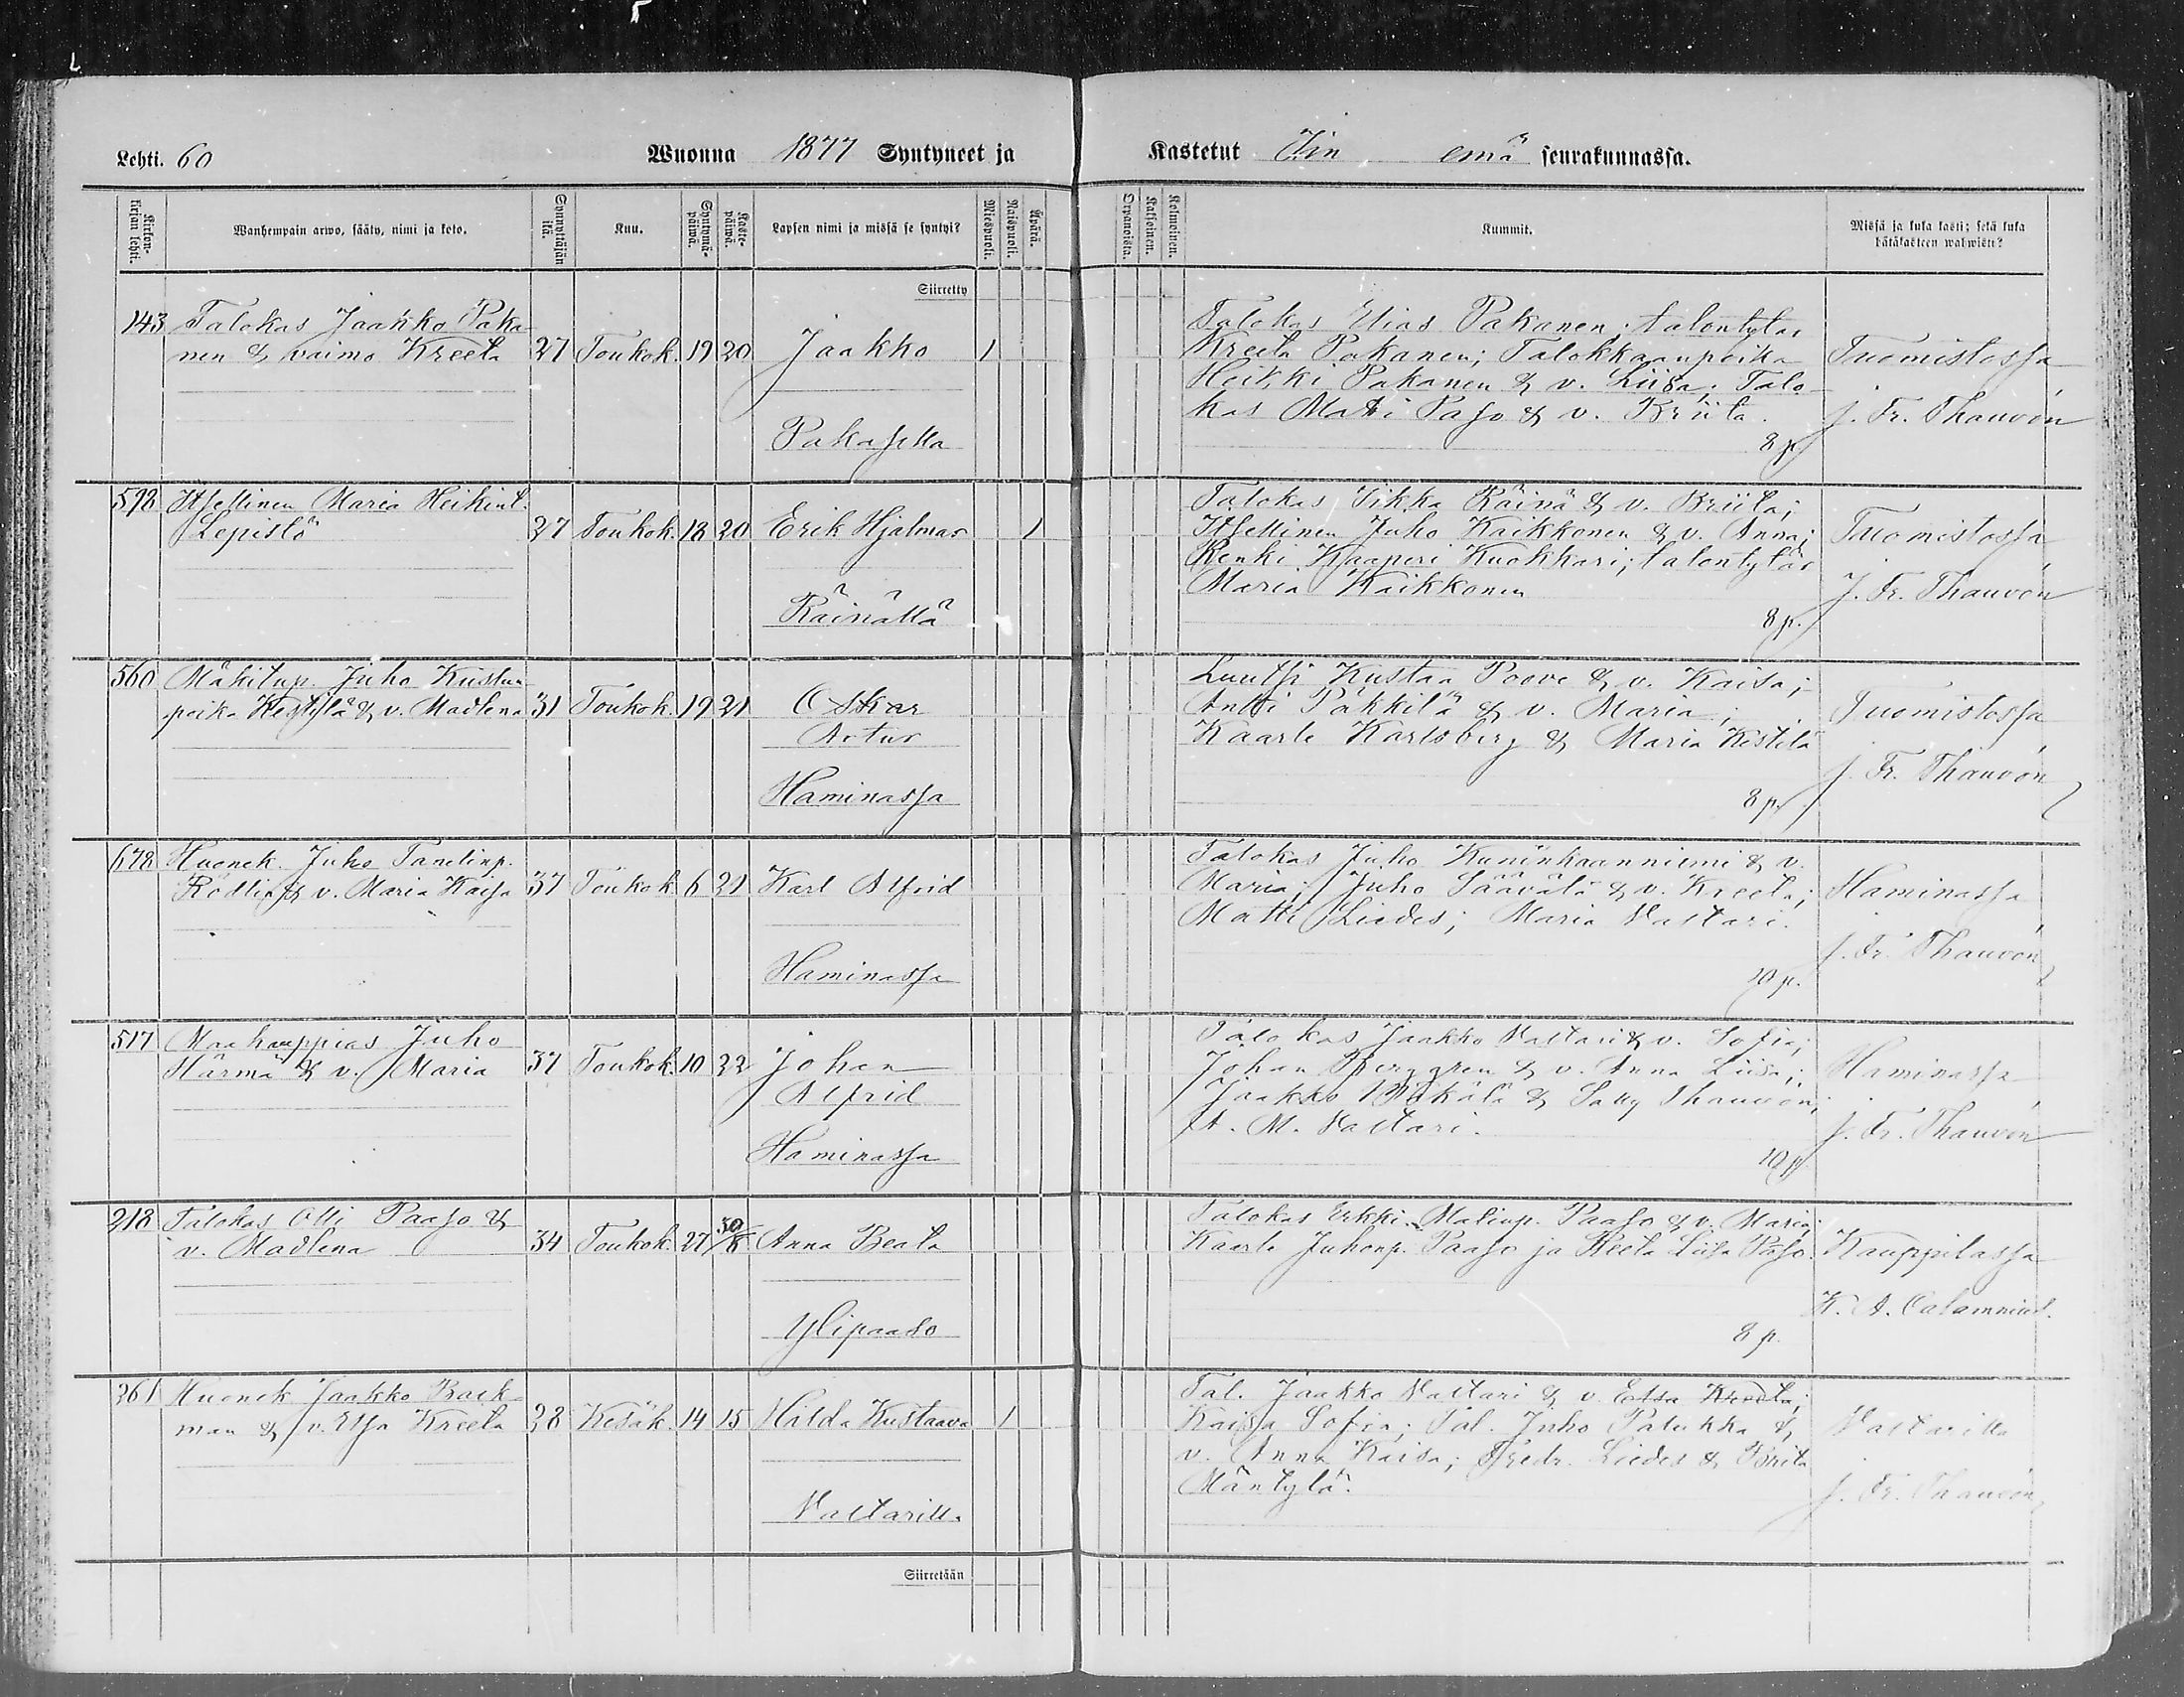 Lehti. 60
Wuonna 1877 Syntyneet ja
Kastetut Iin emä seurakunnassa.
Kirkon-kirjan lehti.
Wanhempain arwo, sääty, nimi ja koto.
Synnyttäjän ikä.
Kuu.
Syntymä-päiwä.
Kaste-päiwä.
Lapsen nimi ja missä se syntyi?
Miespuoli.
Naispuoli.
Äpärä.
Orpanaista.
Kaksoinen.
Kolmoinen.
Kummit.
Missä ja kuka kasti; sekä kuka
hätäkasteen wahwisti?
Siirretty
143 Talokas Jaakko Paka-
nen & vaimo Kreeta 27 Toukok. 19 20 Jaakko 1
Pakasella
Talokas Elias Pakanen; talontytär
Kreeta Pakanen; Talokkaanpoika
Heikki Pakanen & v. Liisa; Talo-
kas Matti Paso & v. Briita.
8 p.
Tuomistossa
J. Fr. Thauvón
598 Itsellinen Maria Heikint.
Lepistö 27 Toukok. 18 20 Erik Hjalmar 1
Räinällä
Talokas Pikka Räinä & v. Briita;
Itsellinen Juho Kaikkonen & v. Anna;
Renki Kaaperi Kuokkari; talontytär
Maria Kaikkonen
8 p.
Tuomistossa
J. Fr. Thauvón
560 Mäkitup. Juho Kustaa
poika Kestilä & v. Madlena 31 Toukok. 19 21 Oskar
Artur
Haminassa
Luutsi Kustaa Poove & v. Kaisa;
Antti Päkkilä & v. Maria;
Kaarle Karlsberg & Maria Kestilä
8 p.
Tuomistossa
J. Fr. Thauvón
678 Huonek. Juho Tanelinp.
Rödlin & v. Maria Kaisa 37 Toukok. 6 21 Karl Alfrid
Haminassa
Talokas Juho Kuninkaanniemi & v.
Maria; Juho Säävälä & v. Kreeta;
Matti Liedes; Maria Vattari.
10 p.
Haminassa
J. Fr. Thauvón
517 Maakauppias Juho
Härmä & v. Maria 37 Toukok. 10 22 Johan
Alfrid
Haminassa
Talokas Jaakko Vattari & v. Sofia;
Johan Berggren & v. Anna Liisa;
Jaakko Mäkälä & Sally Thauvón;
A. M. Vattari.
10 p.
Haminassa
J. Fr. Thauvón
218 Talokas Olli Paaso &
v. Madlena 34 Toukok. 27 30/6 Anna Beata
Ylipaaso
Talokas Erkki Matinp. Paaso & v. Maria;
Kaarle Juhonp. Paaso ja Reeta Liisa Paso.
8 p.
Kauppilassa
K. A. Calamnius.
261 Huonek Jaakko Back-
man & v. Elsa Kreeta 28 Kesäk. 14 15 Hilda Kustaava 1
Vattarilla
Tal. Jaakko Vattari & v. Elsa Kreeta;
Kaisa Sofia; Tal. Juho Palukka &
v. Anna Kaisa; Fredr. Liedes & Briita
Mäntylä.
Vattarilla
J. Fr. Thauvón
Siirretään